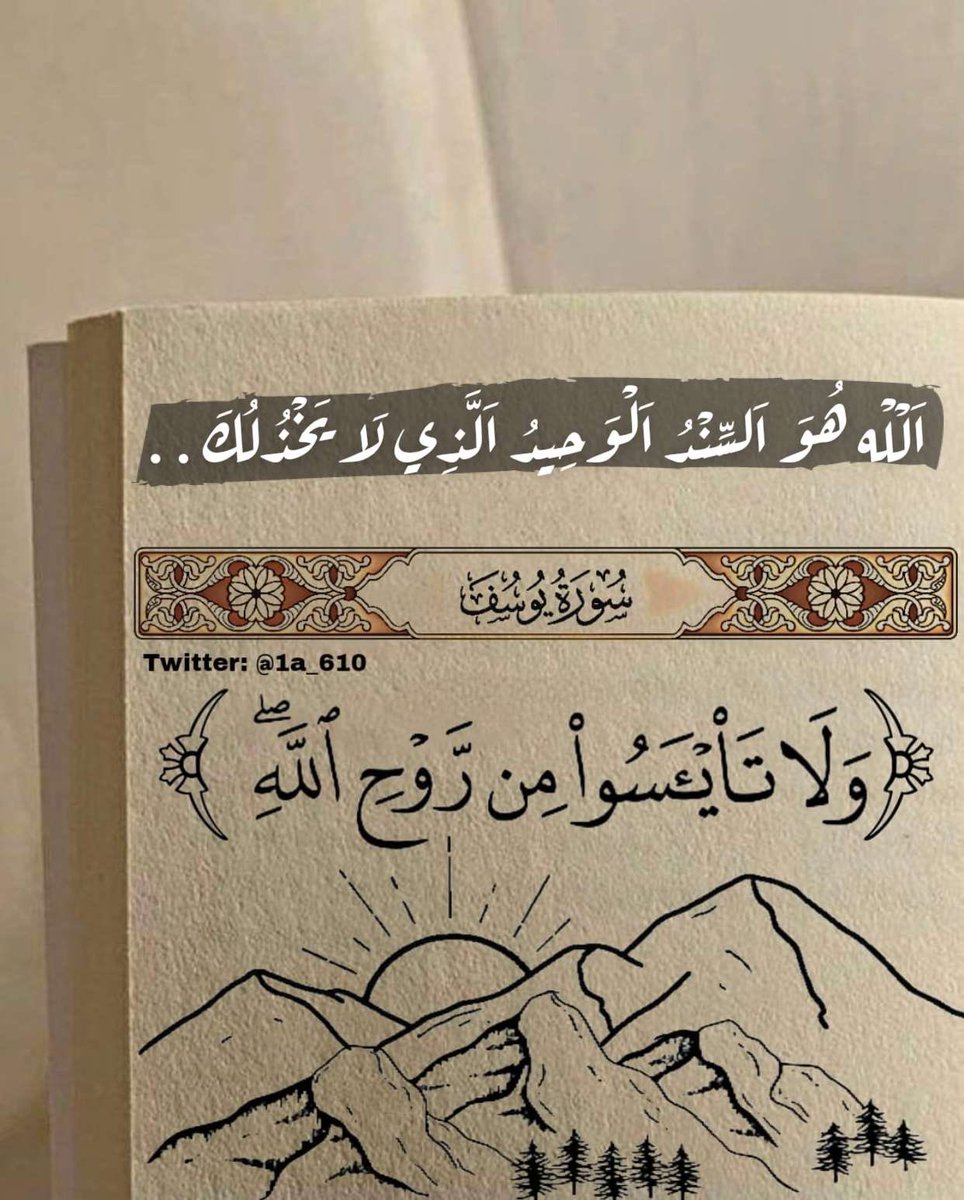 اَلْلْه هُوَ اَلسِّنْدُ اَلْوَحِيدُ اَلَّذِي لَا يَخْذُلُكَ..
سُورَةُ يُوسُفَ
Twitter: @1a_610
﴿وَلَا تَاْيْـَٔسُوا۟ مِن رَّوْحِ ٱللَّهِ ۖ﴾